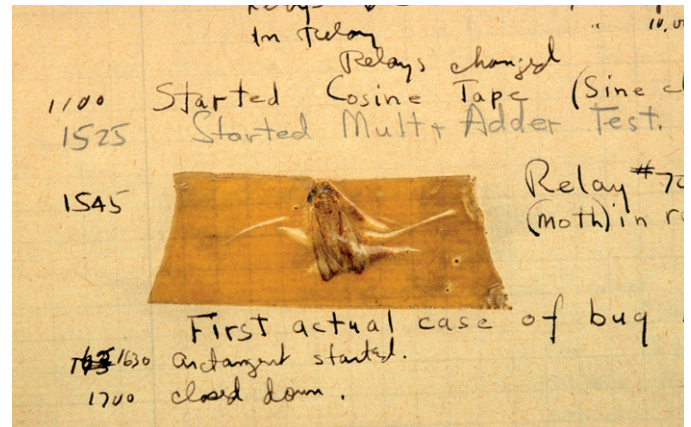 in relay
Relays changed
1100 Started Cosine Tape (Sine
1525 Started Mult+ Adder Test.
1545 Relay #70
(moth) in
First actual case of bug
1630 arctangent started.
1700 closed down.